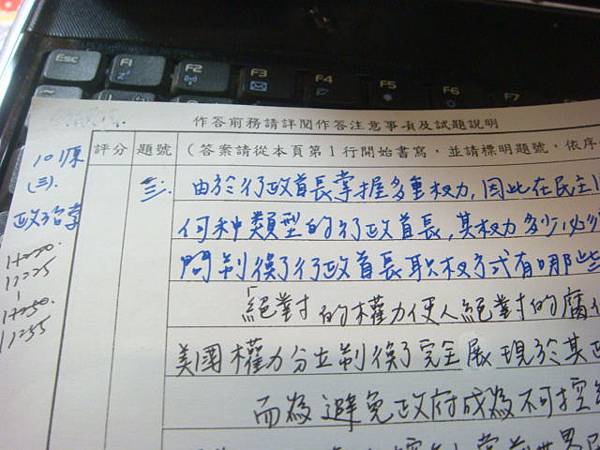 Esc
F1
F2
F3
F4
F5
F6
F7
作答前務請詳閱作答注意事項及試題說明
評分 題號 (答案請從本頁第1行開始書寫,並請標明題號,依序
(三).
政治學
三. 由於行政首長掌握多重權力,因此在民主
何种類型的行政首長,其权力多少必
問制衡行政首長职权方式有哪些
「絕對的權力使人絕對的腐
美國權力分立制衡了完全展現於其政
而為避免政府成為不可控